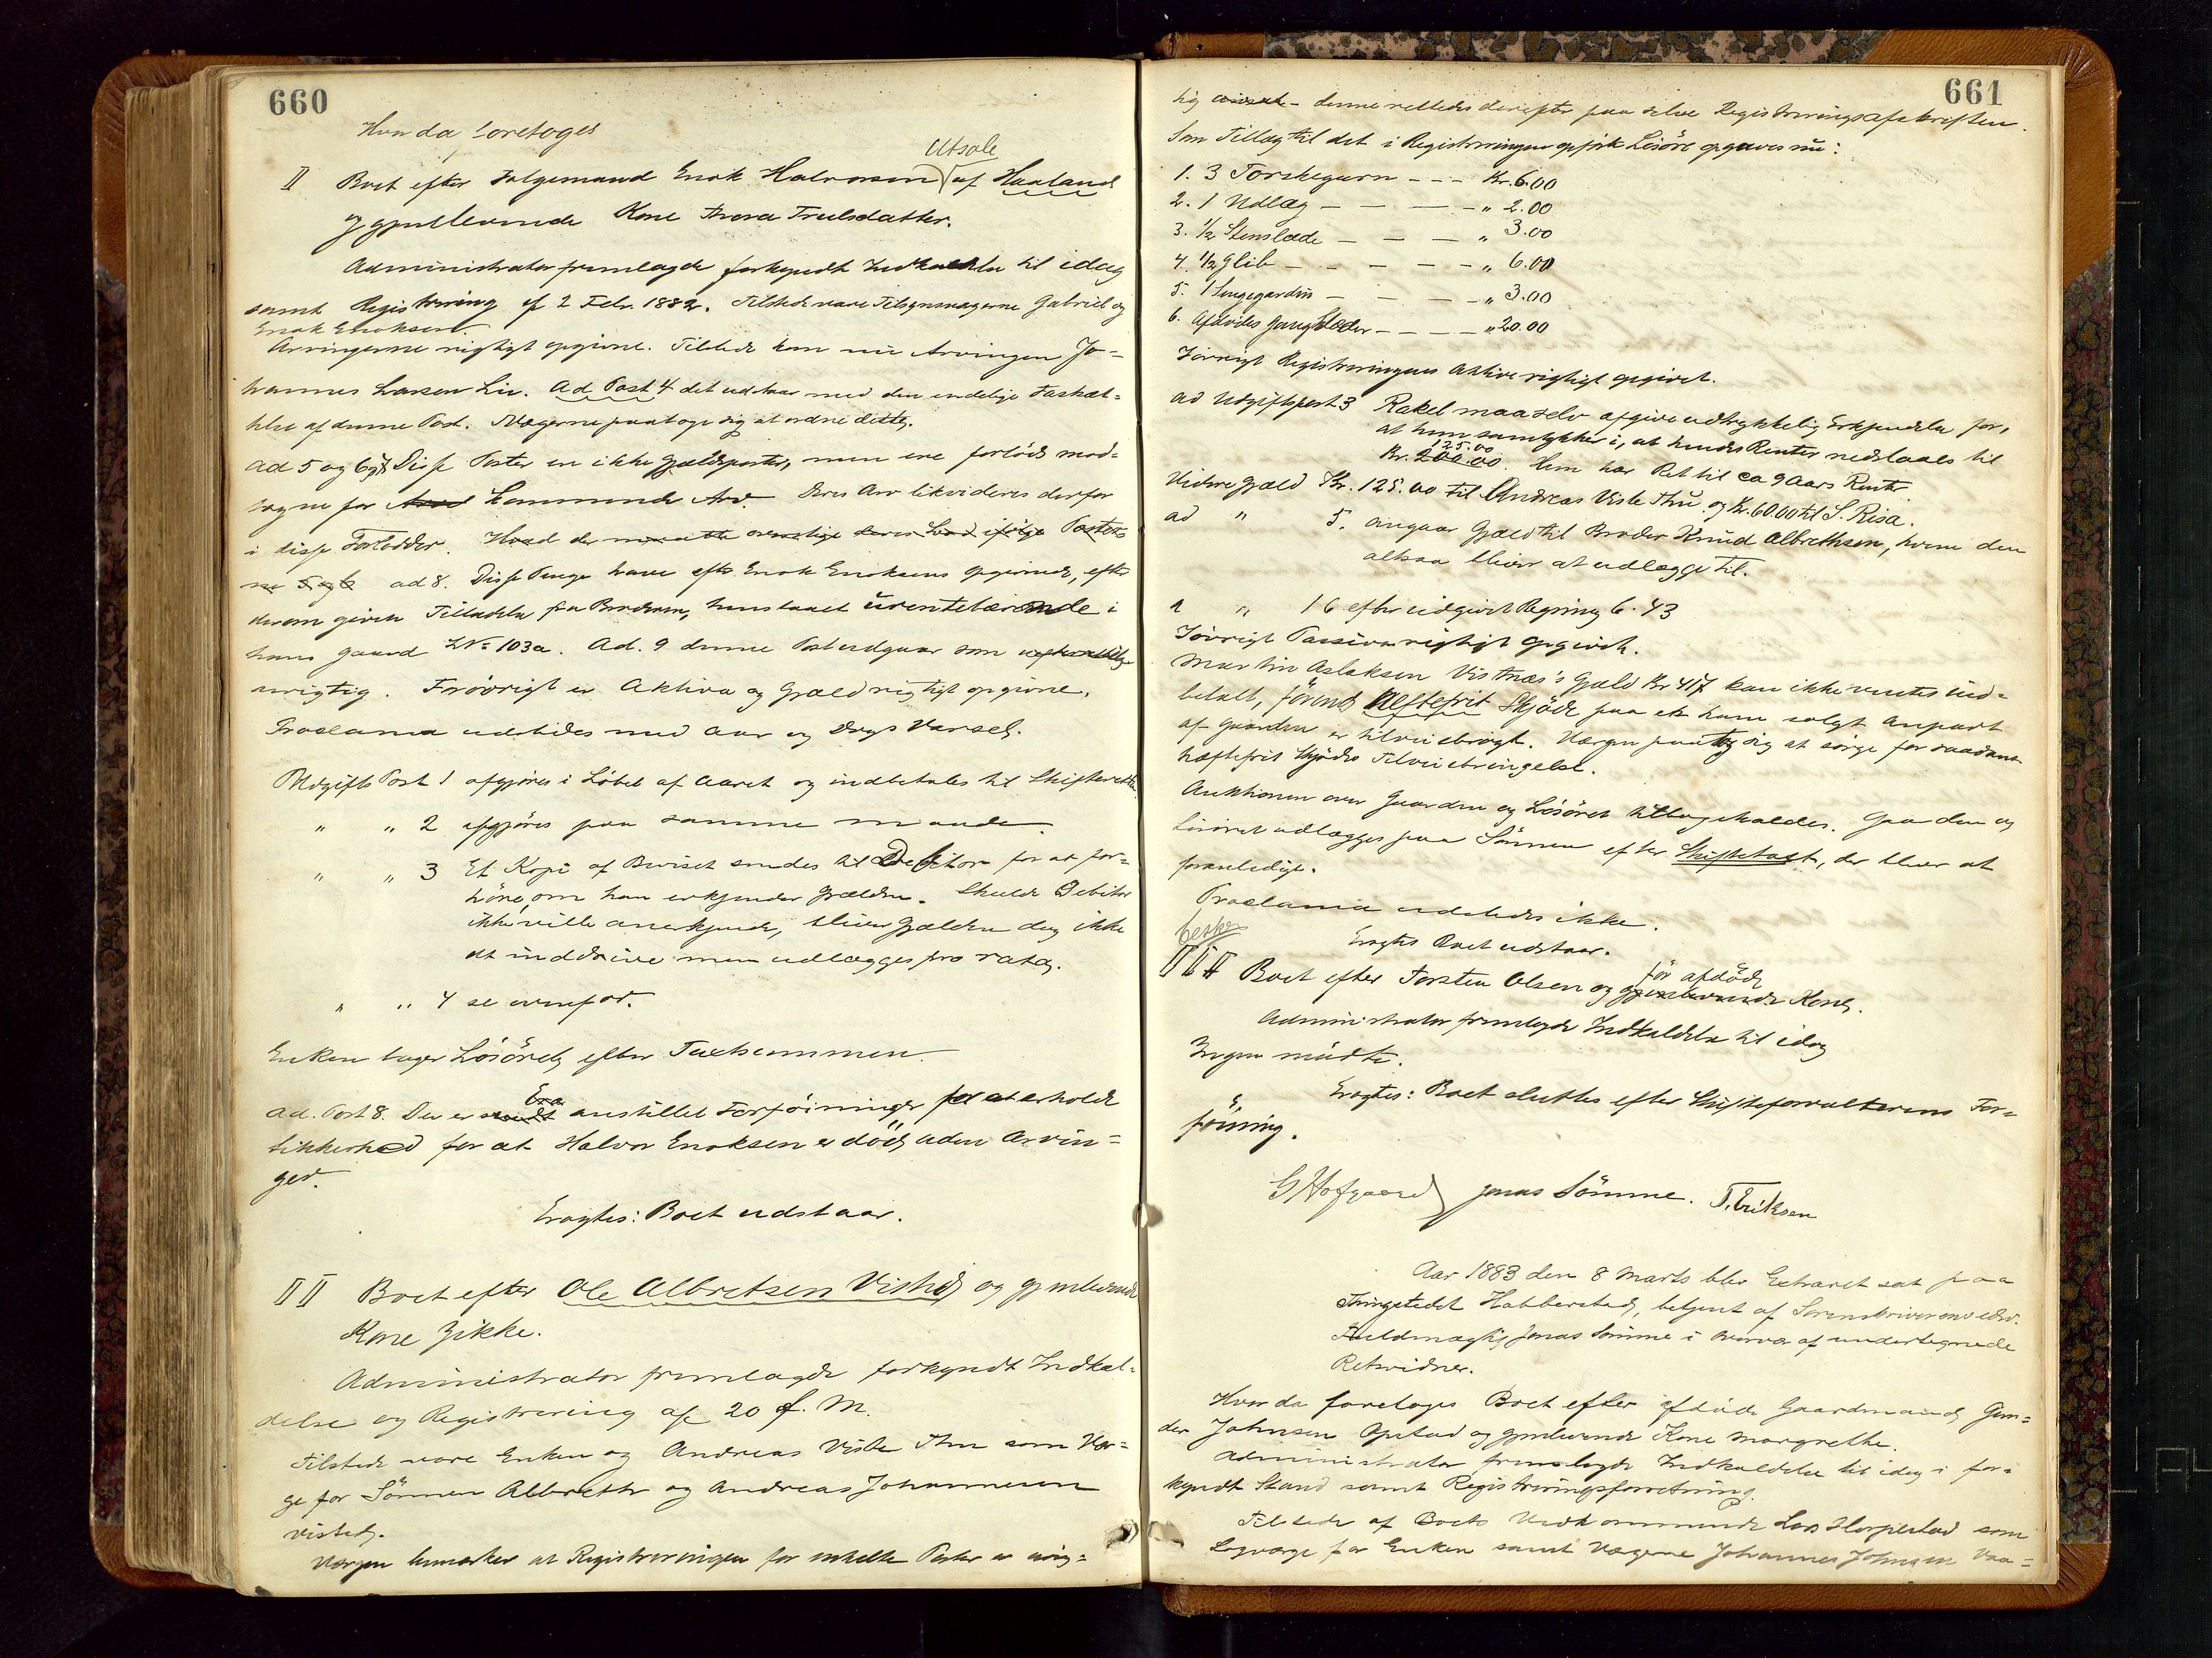 660
Hvorda foretoges
Utsole
II Boet efter Folgemand Enok Halvorsen af Haaland
og gjenlevende Kone Thora Truelsdatter.
Administrator fremlagde forkyndt Indkaldelse til idag
samt Registrering af 2 Febr. 1882. Tilstede vare Tilsynsværgerne Gabriel og
Enok Enoksen.
Arvingerne rigtigt opgivne. Tilstede kom nu Arvingen Jo-
hannes Larsen Lie. Ad Post 4 det udstaar med den endelige Fastsæt-
telse af denne Post. Værgerne paatoge sig at ordne dette.
Ad 5 og 6 Disse Poster er ikke Gjældsposter, men ere forlods mod-
tagne for Arv Kommende Arv. Deres Arv likvideres derfor
i disse Forlodder. Hvad der maatte overstige deres Lod ifølge Poster-
ne 5 og 6 ad 8. Disse Penge have efter Enok Enoksens Opgivende, efter
derom given Tilladelse fra Broderen, henstaaet urentebærende i
hans Gaard LN= 103a. Ad. 9 denne Post udgaar som
urigtig. Forøvrigt er Aktiva og Gjæld rigtigt opgivne.
Proclama udstedes med Aar og Dags Varsel.
Udgifts Post 1 afgjøres i Løbet af Aaret og indbetales til Skifteretten.
" " 2 afgjøres paa samme maade.
" " 3 Et Kopi af Beviset sendes til Debitor for at for-
høre, om han erkjender Gjælden. Skulde Debitor
ikke ville anerkjende, bliver Gjælden dog ikke
at inddrive men udlægges pro rata.
" " 4 se ovenfor.
Enken tager Løsøret efter Taxtsummen.
ad. Post 8. Der er anstillet Forføininger for at erholde
Sikkerhed for at Halvor Enoksen er død uden Arvin-
ger.
Eragtes: Boet udstaar.
III Boet efter Ole Albretsen Visted og gjenlevende
Kone Zikke.
Administrator fremlagde forkyndt Indkal-
delse og Registrering af 20 f. M.
Tilstede vare Enken og Andreas Viste Thu som Vær-
ge for Sønnen Albreth og Andreas Johannesen
Visted.
Værgen bemærker at Registreringen for enkelte Poster er urig-
661
tig - denne rettedes derefter paa selve Registreringsafskriften.
Som Tillæg til det i Registreringen opførte Løsøre opgaves nu:
1. 3 Torskegarn - - - Kr. 6.00
2. 1 Udlæg - - - - " 2.00
3. 1/2 Stenslæde - - - " 3.00
4. 1/2 Glib - - - - - " 6.00
5. 1 Sengegardin - - - - " 3.00
6. Afdødes Gangklæder - - - - " 20.00
Iøvrigt Registreringens Aktiva rigtigt opgivet.
ad Udgiftspost 3 Rakel maa selv afgive udtrykkelig Erkjendelse for,
at hun samtykker i, at hendes Renter nedslaaes til
125.00
Kr. 200.00. Hun har Ret til ca 9 Aars Renter
Videre Gjæld Kr. 125.00 til Andreas Viste Thu og Kr. 60 00 til S. Risa.
ad " 5. angaar Gjæld til Broder Knud Albrethsen, hvem den
altsaa bliver at udlægge til.
" 16 efter udgivet Regning 6.43
Iøvrigt Passiva rigtigt opgivet.
Martin Aslaksen Vistnæs's Gjæld Kr 417 kan ikke ventes ind-
betalt, førend heftefrit Skjøde paa et ham solgt Anpart
af Gaarden er tilveiebragt. Værgen paatog sig at sørge for saadant
hæftefrit Skjødes Tilveiebringelse.
Auktionen over Gaarden og Løsøret tilbageholdes. Gaarden og
Løsøret udlægges paa Sønnen efter Skiftetaxt, der bliver at
foranledige.
Proclama udstedes ikke.
Eragtes Boet udstaar.
IIII Boet efter Torsten Olsen og før afdøde gjenlevende Kone.
Administrator fremlagde Indkaldelse til idag
Ingen mødte.
Eragtes: Boet sluttes efter Skifteforvalterens For-
føining.
G Hofgaard Jonas Sømme. T. Eriksen
Aar 1883 den 8 Marts blev Extraret sat paa
Thingstedet Habberstad, betjent af Sorenskriverens edsv.
Fuldmægtig Jonas Sømme i Overvær af undertegnede
Retsvidner.
Hvorda foretoges Boet efter afdøde Gaardmand Gun-
der Johnsen Opstad og gjenlevende Kone Margrethe.
Administrator fremlagde Indkaldelse til idag i for-
kyndt Stand samt Registreringsforretning.
Tilstede af Boets Vedkommende Lars Herpestad som
Lagværge for Enken samt Værgerne Johannes Johnsen Vaa-